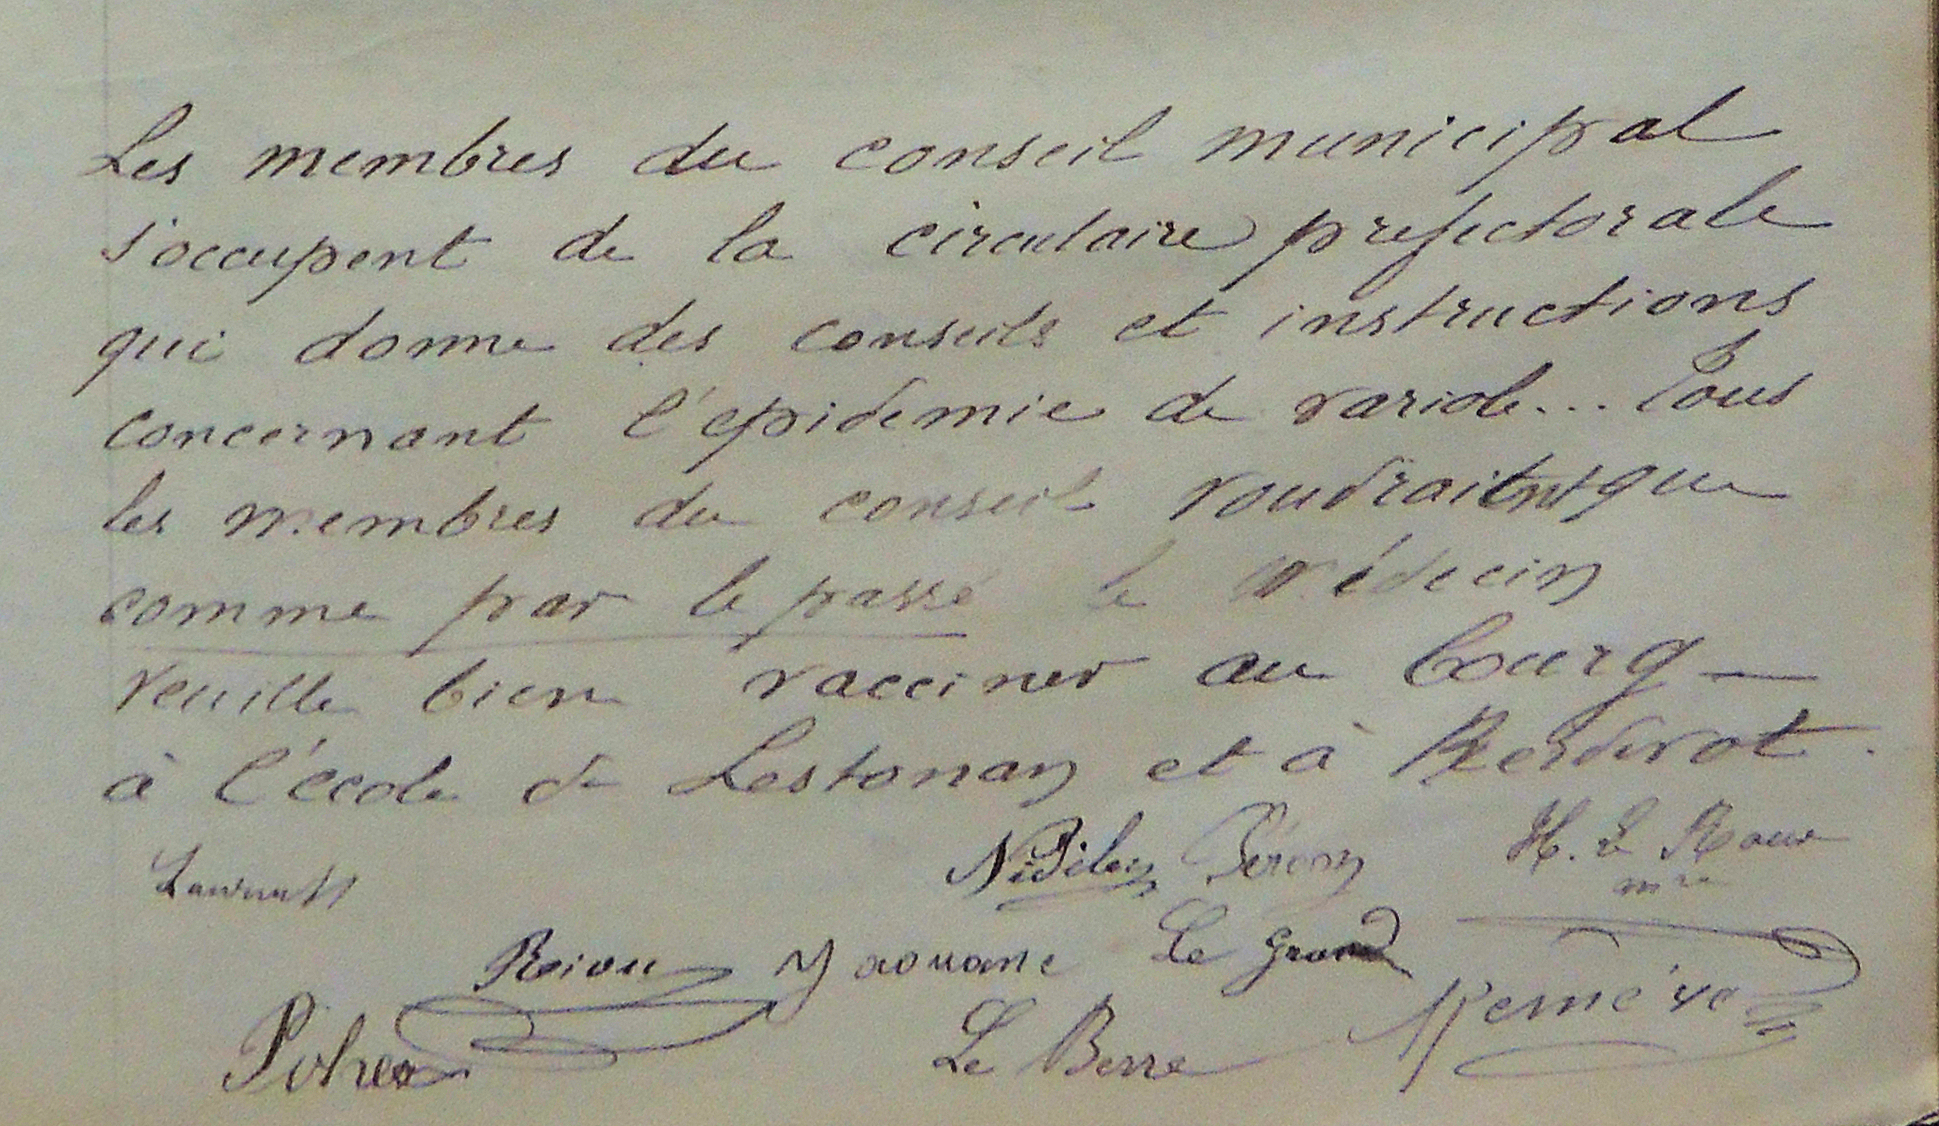 Les membres du conseil municipal
s'occupent de la circulaire prefectorale
qui donne des conseils et instructions
concernant l'épidemie de variole... Tous
les membres du conseil voudraient que
comme par le passé le médecin
veuille bien vacciner au bourg —
à l'école de Lestonan et à Kerdévot.
Nédélec Péron H. Le Roux
mre
Riou Yaouanc Le Grand
Le Berre